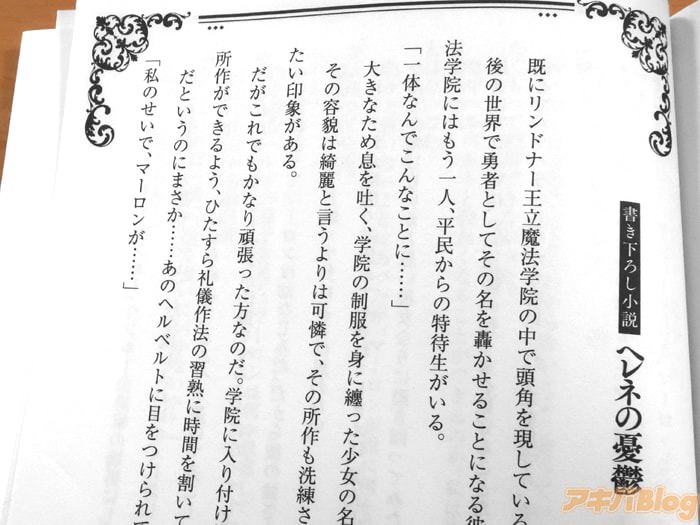 書き下ろし小説
ヘレネの憂鬱
既にリンドナー王立魔法学院の中で頭角を現している
後の世界で勇者としてその名を轟かせることになる彼
法学院にはもう一人、平民からの特待生がいる。
「一体なんでこんなことに……」
大きなため息を吐く、学院の制服を身に纏った少女の名
その容貌は綺麗と言うよりは可憐で、その所作も洗練さ
たい印象がある。
だがこれでもかなり頑張った方なのだ。学院に入り付け
所作ができるよう、ひたすら礼儀作法の習熟に時間を割いて
だというのにまさか……あのヘルベルトに目をつけられて
「私のせいで、マーロンが……」
アキバBlog